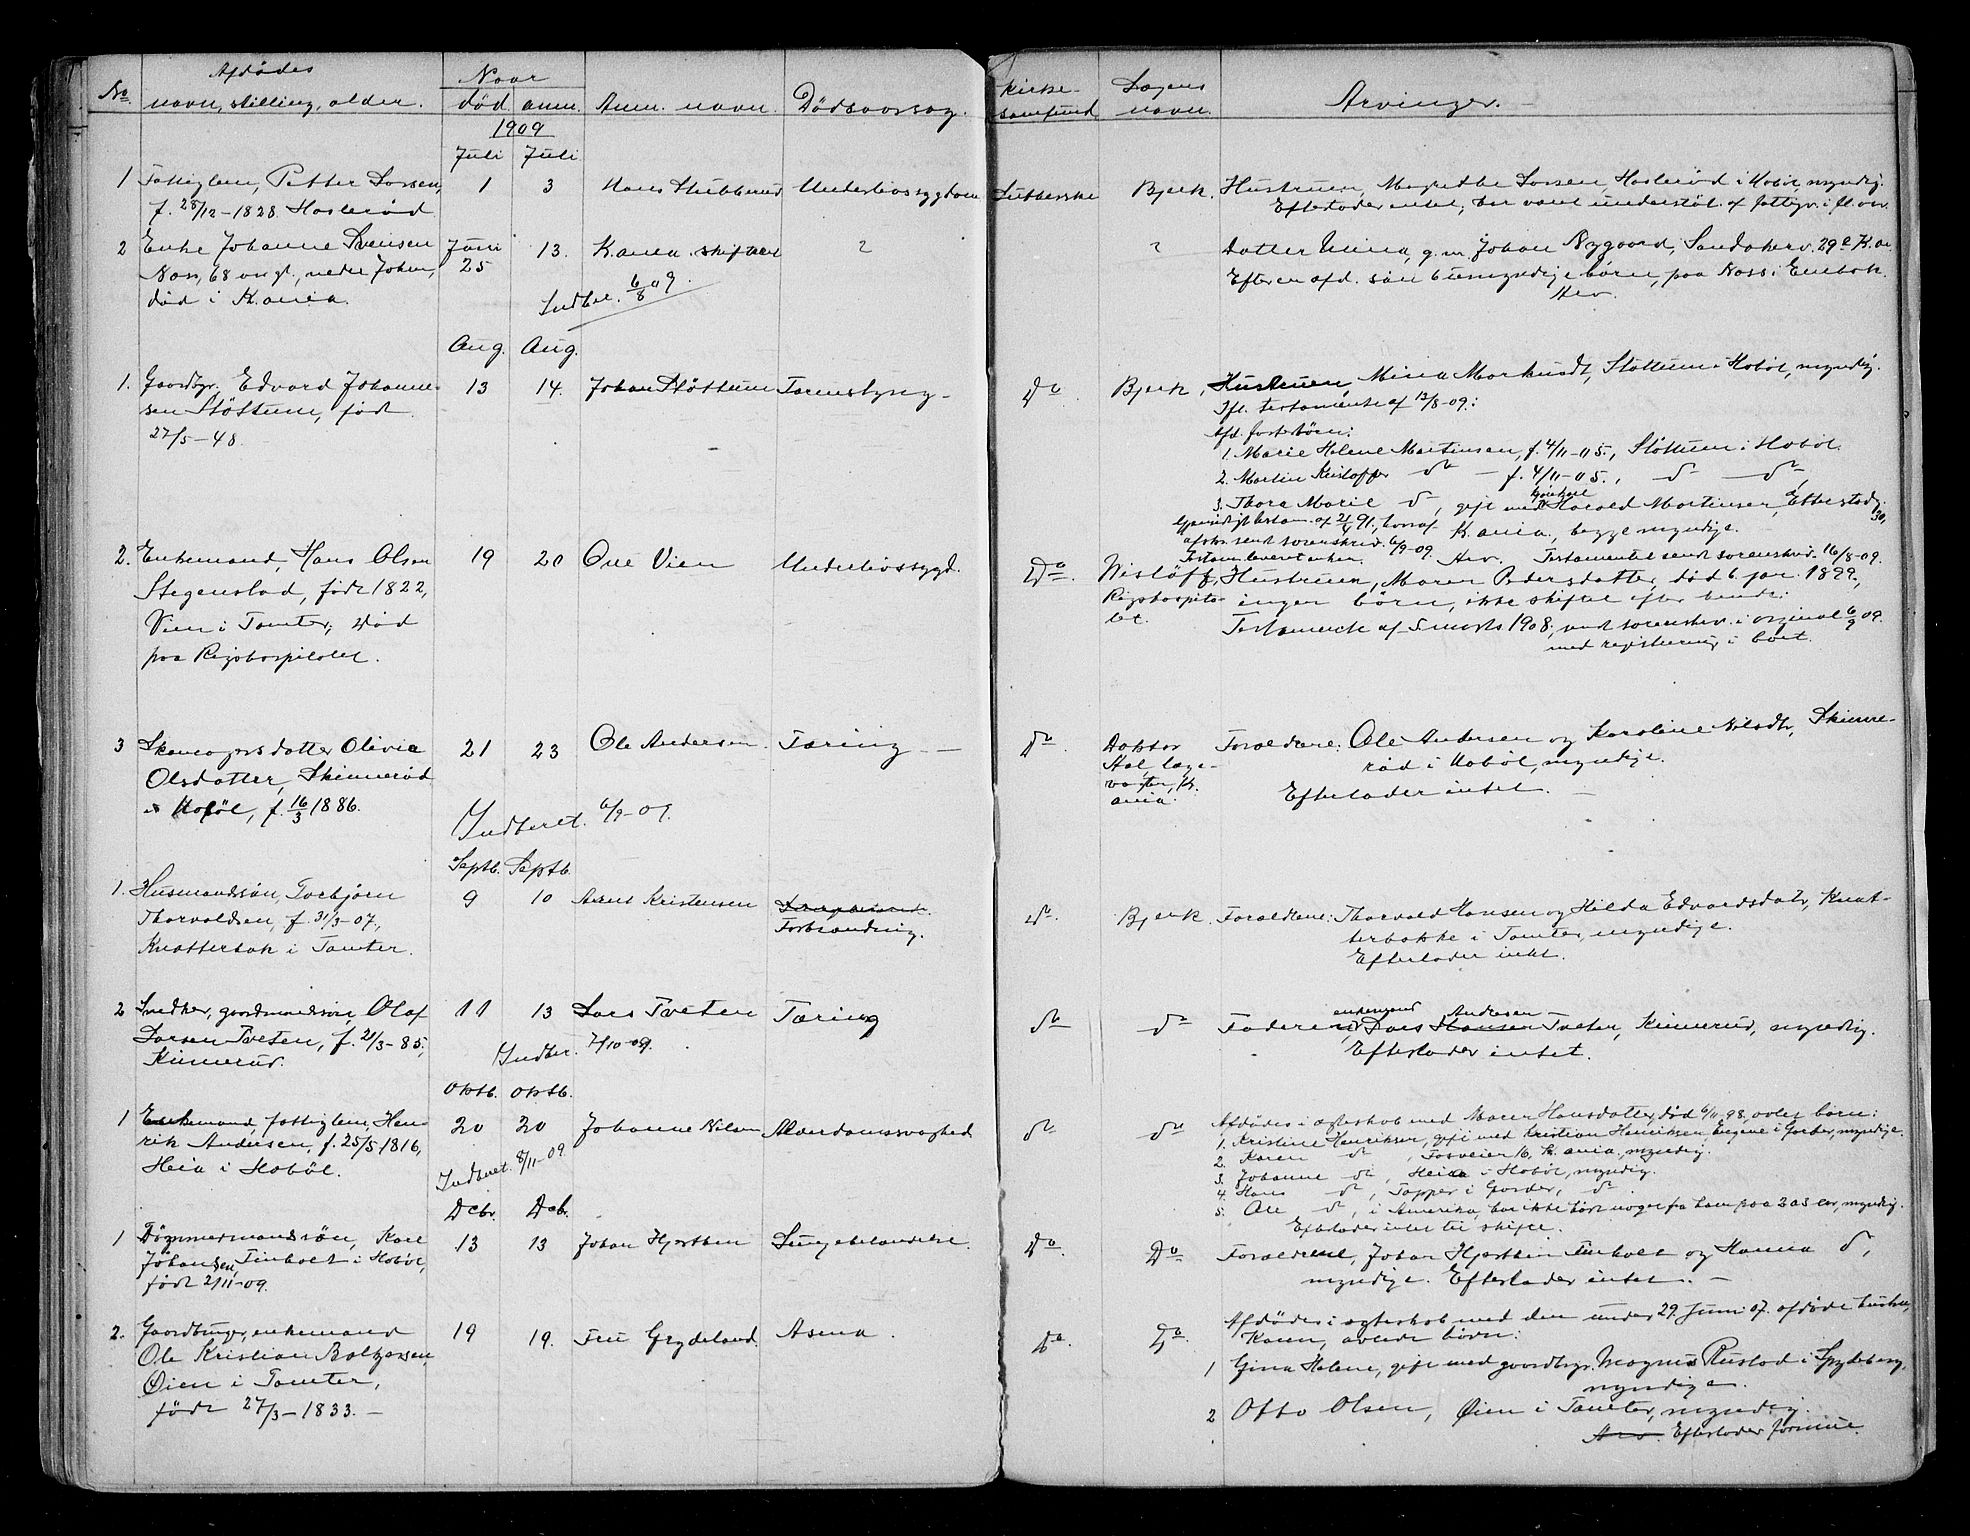 No.
Afdødes
navn, stilling, alder.
Naar
død
anm.
Anm. navn.
Dødsaarsag.
1909
Juli Juli
1 Fattiglem, Petter Larsen, 1 3 Hans Stubberud Underlivssygdom
f. 28/12-1828. Haslerød
2 Enke Johanne Svensen Juni 13. K.ania skifteret ?
Næs, 68 aar gl., 25
død i K.ania.
Indber. 6/8 09.
Aug. Aug.
1. Gaardbr. Edvard Johanne- 13 14. Johan Støttum Tarmslyng
sen Støttum, født
27/5-48.
2. Enkemand, Hans Olsen 19 20 Ove Vien Underlivssygd.
Stegenstad, født 1822,
Vien i Tomter, død
paa Rigshospitalet.
3 datter Olivia 21 23 Ole Andersen Tæring
Olsdatter, Skinnerød
i Hobøl, f. 16/3 1886.
Indberet. 6/9-09.
Septb. Septb.
1. Husmandssøn, Torbjørn 9 10 Kristensen
Thorvaldsen, f. 31/3-07, Forbrænding.
i Tomter.
2 Snedker, gaardmandssøn, Olaf 11 13 Lars Tveten Tæring
Larsen Tveten, f. 21/3-85, Indber. 7/10-09.
Kinnerud.
Oktb. Oktb.
1 Enkemand, fattiglem, Hen- 20 20 Johanne Nilsen Alderdomssvaghed
rik Andersen, f. 25/5 1816,
Heia i Hobøl.
Indberet. 8/11-09
Dcbr. Dcb.
1 Tømmermandssøn, Karl 13 13 Johan Hjertben Lungebetændelse.
Johansen, i Hobøl,
født 2/11-09.
2. Gaardbruger, enkemand 19 19. Gryteland. Asma.
Ole Kristian Baltzersen,
Øien i Tomter,
født 27/3-1833.
Kirke-
samfund
Lægens
navn.
Arvinger.
Lutherske Bjerk. Hustruen, Margrethe Larsen, Haslerød i Hobøl, myndig.
Efterlader intet, har været understøt. af fattigv. i fl. aar.
? Datter Mina, g. m. Johan Nygaard, Sandakerv. 29 K.a.
Efter en afd. søn 6 umyndige børn, paa Næss i Enebak.
Arv.
Do Bjerk, Hustruen Mina Markusdt, Støttum i Hobøl, myndig.
Ifl. testamente af 12/8-09:
Afd. fosterbørn:
1. Marie Helene Martinsen, f. 4/11-05, Støttum i Hobøl.
2. Martin Kristoffer do - f. 4/11-05, do do
3. Thora Marie do, gift med Harald Martinsen, 30,
K.ania, begge myndige.
Arv. Testamentet sendt sorenskriv. 16/8-09.
Do. Nisløff, Hustruen, Maren Pedersdatter, død 6 jan. 1899,
Rigshospita- ingen børn, ikke skiftet efter hende.
let. Testamente af 5 marts 1908, sendt sorenskr. i original 6/9 09.
med registrering i boet.
Do. Doktor Forældrene: Ole Andersen og Karoline Nilsdt, Skinne-
rød i Hobøl, myndige.
ania. Efterlader intet.
Do. Bjerk. Forældrene: Thorvald Hansen og Hilda Edvardsdatr, Knat-
terbakke i Tomter, myndige.
Efterlader intet.
enkemand Andresen
do do Faderen, Lars Hansen Tveter, Kinnerud, myndig.
Efterlader intet.
do do Afdødes i ægteskab med Maren Hansdatter, død 6/11 98, avlet børn:
1. Kristine Henriksen, gift med Kristian Henriksen, i Garder, myndige.
2. Karen do, Fossveien 16, K.ania, myndig.
3. Johanne do, Heia i Hobøl, myndig.
4. Hans do, Topper i Garder, do
5. Ole do, i Amerika, har ikke hørt noget fra ham paa 2 a 3 aar, myndig.
Efterlader intet til skifte.
Do. Do. Forældrene, Johan Hjertben og Hanna do,
myndige. Efterlader intet.
Do Do. Afdødes i ægteskab med den under 29. Juni 07 afdøde hustru,
Karen, avlede børn:
1 Gina Helene, gift med gaardbgr. Magnus Rustad i Spydeberg,
myndige.
2 Otto Olsen, Øien i Tomter, myndig.
Arv. Efterlader formue.